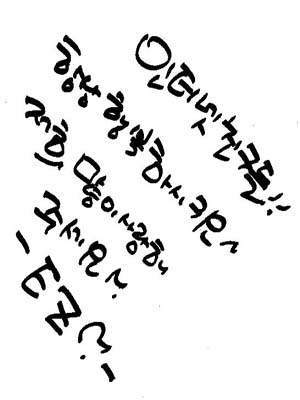 인터넷친구들!!
항상 행복하시구요~
저희 많이사랑해
주세요~!